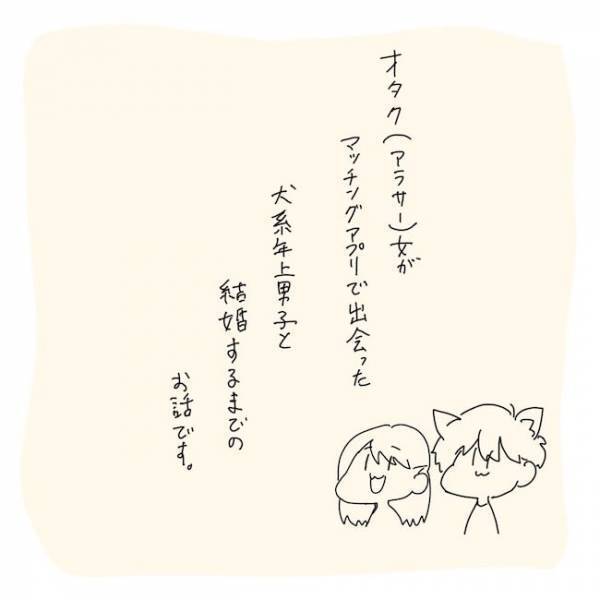 オタク(アラサー)女が
マッチングアプリで出会った
犬系年上男子と
結婚するまでの
お話です。